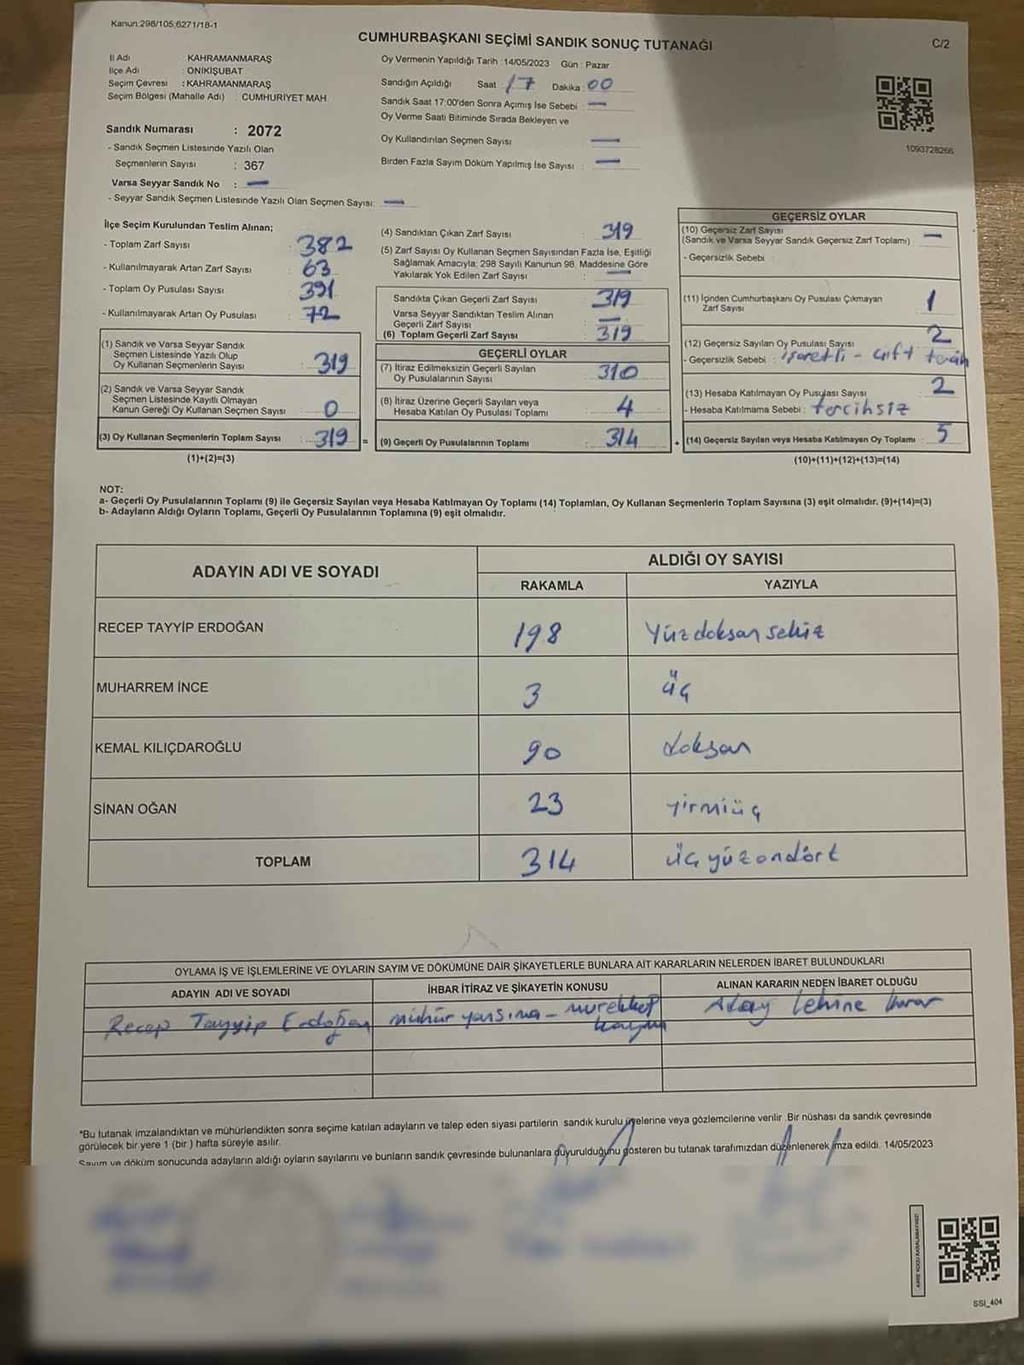 Kanun:298/105;6271/18-1
CUMHURBAŞKANI SEÇİMİ SANDIK SONUÇ TUTANAĞI
C/2
İl Adı KAHRAMANMARAŞ
İlçe Adı ONİKİŞUBAT
Seçim Çevresi : KAHRAMANMARAŞ
Seçim Bölgesi (Mahalle Adı) : CUMHURİYET MAH
Sandık Numarası : 2072
- Sandık Seçmen Listesinde Yazılı Olan
Seçmenlerin Sayısı : 367
Varsa Seyyar Sandık No : —
- Seyyar Sandık Seçmen Listesinde Yazılı Olan Seçmen Sayısı: —
Oy Vermenin Yapıldığı Tarih : 14/05/2023 Gün : Pazar
Sandığın Açıldığı Saat 17 Dakika : 00
Sandık Saat 17:00'den Sonra Açımış İse Sebebi —
Oy Verme Saati Bitiminde Sırada Bekleyen ve
Oy Kullandırılan Seçmen Sayısı —
Birden Fazla Sayım Döküm Yapılmış İse Sayısı : —
1093728266
İlçe Seçim Kurulundan Teslim Alınan;
- Toplam Zarf Sayısı : 382
- Kullanılmayarak Artan Zarf Sayısı : 63
- Toplam Oy Pusulası Sayısı : 391
- Kullanılmayarak Artan Oy Pusulası : 72
(1) Sandık ve Varsa Seyyar Sandık
Seçmen Listesinde Yazılı Olup
Oy Kullanan Seçmenlerin Sayısı : 319
(2) Sandık ve Varsa Seyyar Sandık
Seçmen Listesinde Kayıtlı Olmayan
Kanun Gereği Oy Kullanan Seçmen Sayısı : 0
(3) Oy Kullanan Seçmenlerin Toplam Sayısı : 319 =
(1)+(2)=(3)
(4) Sandıktan Çıkan Zarf Sayısı : 319
(5) Zarf Sayısı Oy Kullanan Seçmen Sayısından Fazla İse, Eşitliği
Sağlamak Amacıyla; 298 Sayılı Kanunun 98. Maddesine Göre
Yakılarak Yok Edilen Zarf Sayısı : —
Sandıkta Çıkan Geçerli Zarf Sayısı : 319
Varsa Seyyar Sandıktan Teslim Alınan
Geçerli Zarf Sayısı : —
(6) Toplam Geçerli Zarf Sayısı : 319
GEÇERLİ OYLAR
(7) İtiraz Edilmeksizin Geçerli Sayılan
Oy Pusulalarının Sayısı : 310
(8) İtiraz Üzerine Geçerli Sayılan veya
Hesaba Katılan Oy Pusulası Toplamı : 4
(9) Geçerli Oy Pusulalarının Toplamı : 314 +
GEÇERSİZ OYLAR
(10) Geçersiz Zarf Sayısı
(Sandık ve Varsa Seyyar Sandık Geçersiz Zarf Toplamı) —
- Geçersizlik Sebebi :
(11) İçinden Cumhurbaşkanı Oy Pusulası Çıkmayan
Zarf Sayısı 1
(12) Geçersiz Sayılan Oy Pusulası Sayısı : 2
- Geçersizlik Sebebi : işaretli - çift tercih
(13) Hesaba Katılmayan Oy Pusulası Sayısı 2
- Hesaba Katılmama Sebebi : tercihsiz
(14) Geçersiz Sayılan veya Hesaba Katılmayan Oy Toplamı : 5
(10)+(11)+(12)+(13)=(14)
NOT:
a- Geçerli Oy Pusulalarının Toplamı (9) ile Geçersiz Sayılan veya Hesaba Katılmayan Oy Toplamı (14) Toplamları, Oy Kullanan Seçmenlerin Toplam Sayısına (3) eşit olmalıdır. (9)+(14)=(3)
b- Adayların Aldığı Oyların Toplamı, Geçerli Oy Pusulalarının Toplamına (9) eşit olmalıdır.
ADAYIN ADI VE SOYADI
ALDIĞI OY SAYISI
RAKAMLA YAZIYLA
RECEP TAYYİP ERDOĞAN 198 Yüzdoksansekiz
MUHARREM İNCE 3 üç
KEMAL KILIÇDAROĞLU 90 doksan
SİNAN OĞAN 23 yirmiüç
TOPLAM 314 üçyüzondört
OYLAMA İŞ VE İŞLEMLERİNE VE OYLARIN SAYIM VE DÖKÜMÜNE DAİR ŞİKAYETLERLE BUNLARA AİT KARARLARIN NELERDEN İBARET BULUNDUKLARI
ADAYIN ADI VE SOYADI İHBAR İTİRAZ VE ŞİKAYETİN KONUSU ALINAN KARARIN NEDEN İBARET OLDUĞU
Recep Tayyip Erdoğan mühür yansıma - mürekkep Aday lehine karar
*Bu tutanak imzalandıktan ve mühürlendikten sonra seçime katılan adayların ve talep eden siyasi partilerin sandık kurulu üyelerine veya gözlemcilerine verilir. Bir nüshası da sandık çevresinde
görülecek bir yere 1 (bir) hafta süreyle asılır.
Sayım ve döküm sonucunda adayların aldığı oyların sayılarını ve bunların sandık çevresinde bulunanlara duyurulduğunu gösteren bu tutanak tarafımızdan düzenlenerek imza edildi. 14/05/2023
SSİ_404